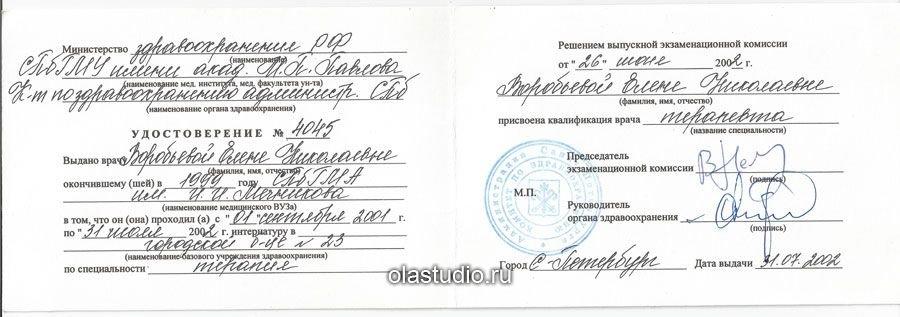 Министерство здравоохранения РФ
(наименование)
СПбГМУ имени акад. И.П. Павлова
(наименование мед. института, мед. факультета ун-та)
К-т по здравоохранению администр. СПб
(наименование органа здравоохранения)
УДОСТОВЕРЕНИЕ № 4045
Выдано врачу Воробьевой Елене Николаевне
(фамилия, имя, отчество)
окончившему (шей) в 1999 году СПбГМА
им. И.И. Мечникова
(наименование медицинского ВУЗа)
в том, что он (она) проходил (а) с "01 сентября 2001 г.
по "31 июля 2002 г. интернатуру в
городской б-це № 23
(наименование базового учреждения здравоохранения)
по специальности терапия
Решением выпускной экзаменационной комиссии
от "26" июня 2002 г.
Воробьевой Елене Николаевне
(фамилия, имя, отчество)
присвоена квалификация врача терапевта
(название специальности)
Председатель
экзаменационной комиссии
(подпись)
М.П.
Руководитель
органа здравоохранения
(подпись)
Город С-Петербург Дата выдачи 31.07.2002
olastudio.ru